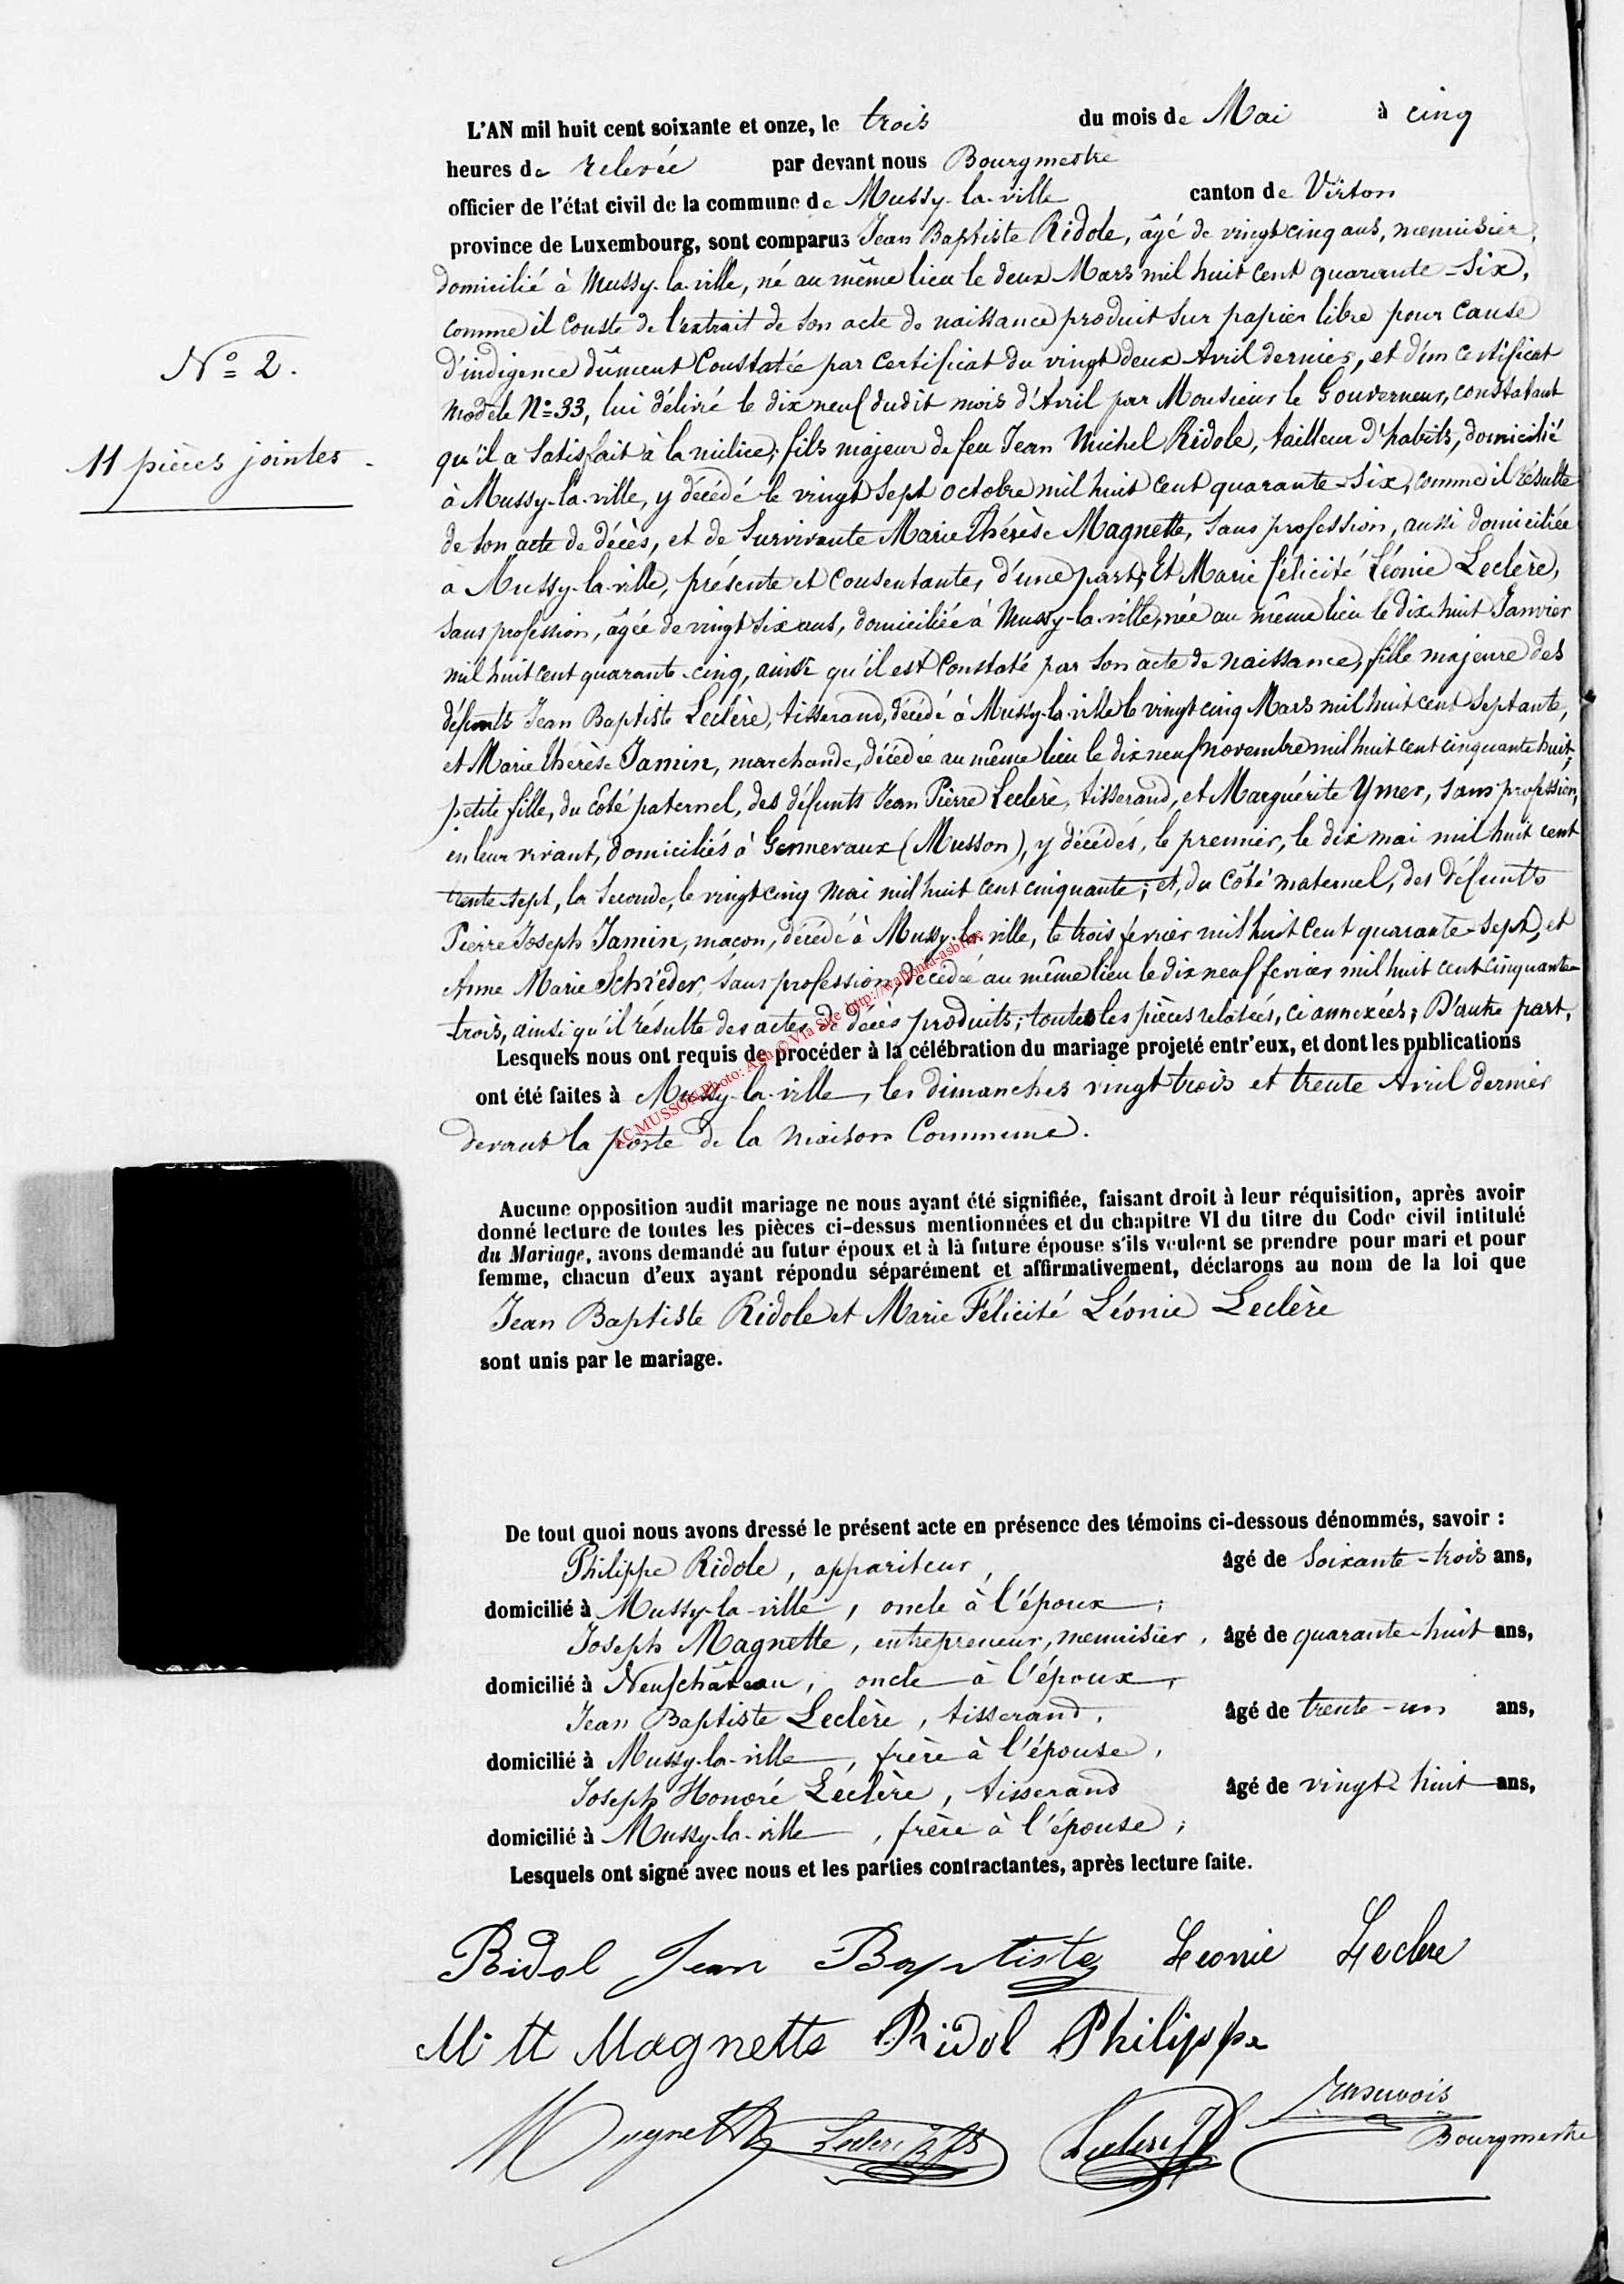 L'AN mil huit cent soixante et onze, le trois du mois de Mai à cinq
heures de relevée par devant nous Bourgmestre
officier de l'état civil de la commune de Mussy-la-ville canton de Virton
province de Luxembourg, sont comparus Jean Baptiste Ridole, âgé de vingt cinq ans, menuisier,
domicilié à Mussy-la-ville, né au même lieu le deux Mars mil huit cent quarante-six,
comme il conste de l'extrait de son acte de naissance produit sur papier libre pour cause
N° 2.
d'indigence dûment constatée par certificat du vingt deux Avril dernier, et d'un certificat
modèle N° 33, lui délivré le dix neuf dudit mois d'Avril par Monsieur le Gouverneur, constatant
11 pièces jointes.
qu'il a satisfait à la milice; fils majeur de feu Jean Michel Ridole, tailleur d'habits, domicilié
à Mussy-la-ville, y décédé le vingt sept octobre mil huit cent quarante-six, comme il résulte
de son acte de décès, et de survivante Marie Thérèse Magnette, sans profession, aussi domiciliée
à Mussy-la-ville, présente et consentante, d'une part; Et Marie Félicité Léonie Leclère,
sans profession, âgée de vingt six ans, domiciliée à Mussy-la-ville, née au même lieu le dix huit Janvier
mil huit cent quarante-cinq, ainsi qu'il est constaté par son acte de naissance, fille majeure des
défunts Jean Baptiste Leclère, tisserand, décédé à Mussy-la-ville le vingt cinq Mars mil huit cent septante,
et Marie Thérèse Jamin, marchande, décédée au même lieu le dix neuf novembre mil huit cent cinquante huit;
petite fille, du côté paternel, des défunts Jean Pierre Leclère, tisserand, et Marguérite Ymer, sans profession,
en leur vivant, domiciliés à Gennevaux (Musson), y décédés, le premier, le dix mai mil huit cent
trente-sept, la seconde, le vingt cinq mai mil huit cent cinquante; et, du côté maternel, des défunts
Pierre Joseph Jamin, maçon, décédé à Mussy-la-ville, le trois fevrier mil huit cent quarante-sept, et
Anne Marie Schréder, sans profession, décédée au même lieu le dix neuf fevrier mil huit cent cinquante-
trois, ainsi qu'il résulte des actes de décès produits; toutes les pièces relatées, ci annexées; D'autre part,
AC MUSSON Photo: ASA © Via Site http://wallonia-asbl.be
Lesquels nous ont requis de procéder à la célébration du mariage projeté entr'eux, et dont les publications
ont été faites à Mussy-la-ville, les dimanches vingt trois et trente Avril dernier
devant la porte de la maison Commune.
Aucune opposition audit mariage ne nous ayant été signifiée, faisant droit à leur réquisition, après avoir
donné lecture de toutes les pièces ci-dessus mentionnées et du chapitre VI du titre du Code civil intitulé
du Mariage, avons demandé au futur époux et à là future épouse s'ils veulent se prendre pour mari et pour
femme, chacun d'eux ayant répondu séparément et affirmativement, déclarons au nom de la loi que
Jean Baptiste Ridole et Marie Félicité Léonie Leclère
sont unis par le mariage.
De tout quoi nous avons dressé le présent acte en présence des témoins ci-dessous dénommés, savoir :
Philippe Ridole, appariteur, âgé de soixante-trois ans,
domicilié à Mussy-la-ville, oncle à l'époux;
Joseph Magnette, entrepreneur, menuisier, âgé de quarante-huit ans,
domicilié à Neufchâteau, oncle à l'époux,
Jean Baptiste Leclère, tisserand, âgé de trente-un ans,
domicilié à Mussy-la-ville, frère à l'épouse,
Joseph Honoré Léclère, tisserand âgé de vingt-huit ans,
domicilié à Mussy-la-ville, frère à l'épouse;
Lesquels ont signé avec nous et les parties contractantes, après lecture faite.
Ridol Jean Baptiste Leonie Leclere
M tt Magnette Ridol Philippe
Magnette Leclere Leclere
Bourgmestre